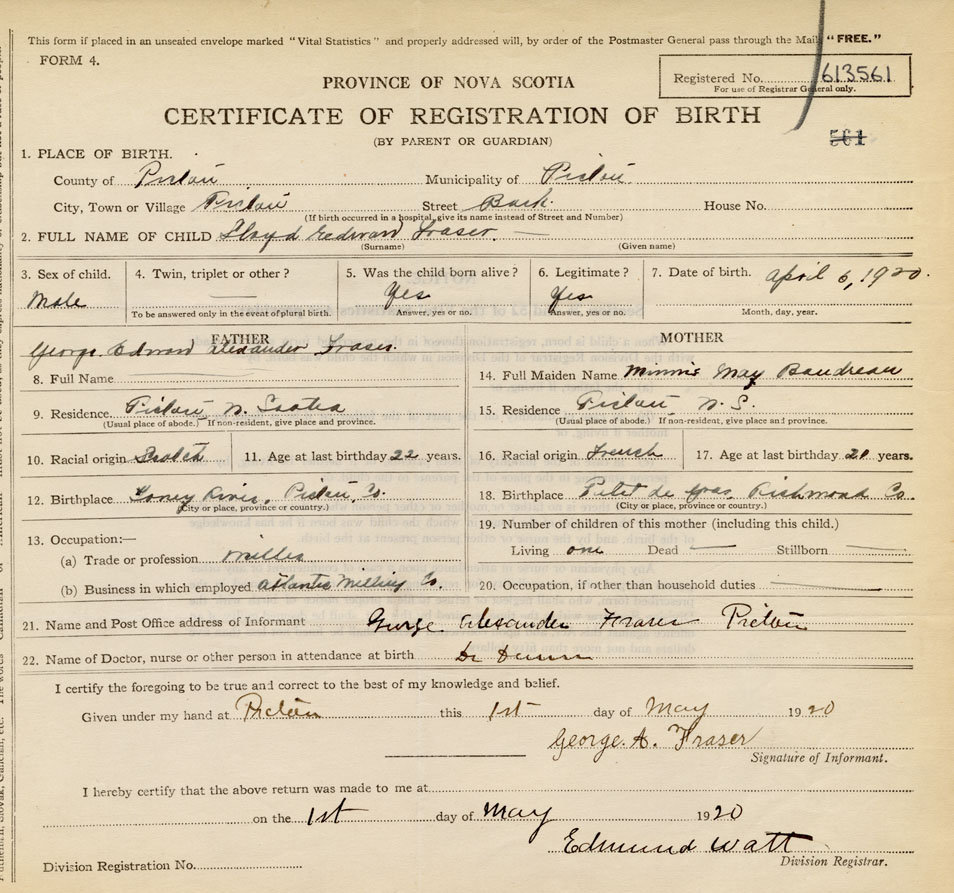 This form if placed in an unsealed envelope marked "Vital Statistics" and properly addressed will, by order of the Postmaster General pass through the Mail "FREE."
FORM 4.
PROVINCE OF NOVA SCOTIA
Registered No. 613561
For use of Registrar General only.
CERTIFICATE OF REGISTRATION OF BIRTH
561
(BY PARENT OR GUARDIAN)
1. PLACE OF BIRTH.
County of Pictou Municipality of Pictou
City, Town or Village Pictou Street Back. House No.
(If birth occurred in a hospital, give its name instead of Street and Number)
2. FULL NAME OF CHILD Lloyd Edward Fraser.
(Surname) (Given name)
3. Sex of child. 4. Twin, triplet or other? 5. Was the child born alive? 6. Legitimate? 7. Date of birth. April 6, 1920.
Male Yes Yes
To be answered only in the event of plural birth. Answer, yes or no. Answer, yes or no. Month, day, year.
FATHER
George Edward Alexander Fraser.
8. Full Name
9. Residence. Pictou N. Scotia
(Usual place of abode.) If non-resident, give place and province.
10. Racial origin Scotch 11. Age at last birthday 22 years.
12. Birthplace Toney River, Pictou Co.
(City or place, province or country.)
13. Occupation:—
(a) Trade or profession Miller
(b) Business in which employed Atlantic Milling Co.
MOTHER
14. Full Maiden Name Minnie May Boudreau
15. Residence Pictou N. S.
(Usual place of abode.) If non-resident, give place and province.
16. Racial origin French 17. Age at last birthday 21 years.
18. Birthplace Petit de Gras, Richmond Co.
(City or place, province or country.)
19. Number of children of this mother (including this child.)
Living one Dead — Stillborn —
20. Occupation, if other than household duties
21. Name and Post Office address of Informant George Alexander Fraser Pictou
22. Name of Doctor, nurse or other person in attendance at birth Dr Dunn
I certify the foregoing to be true and correct to the best of my knowledge and belief.
Given under my hand at Pictou this 1st day of May 1920
George. A. Fraser
Signature of Informant.
I hereby certify that the above return was made to me at
on the 1st day of May 1920
Edmund Watt
Division Registration No. Division Registrar.